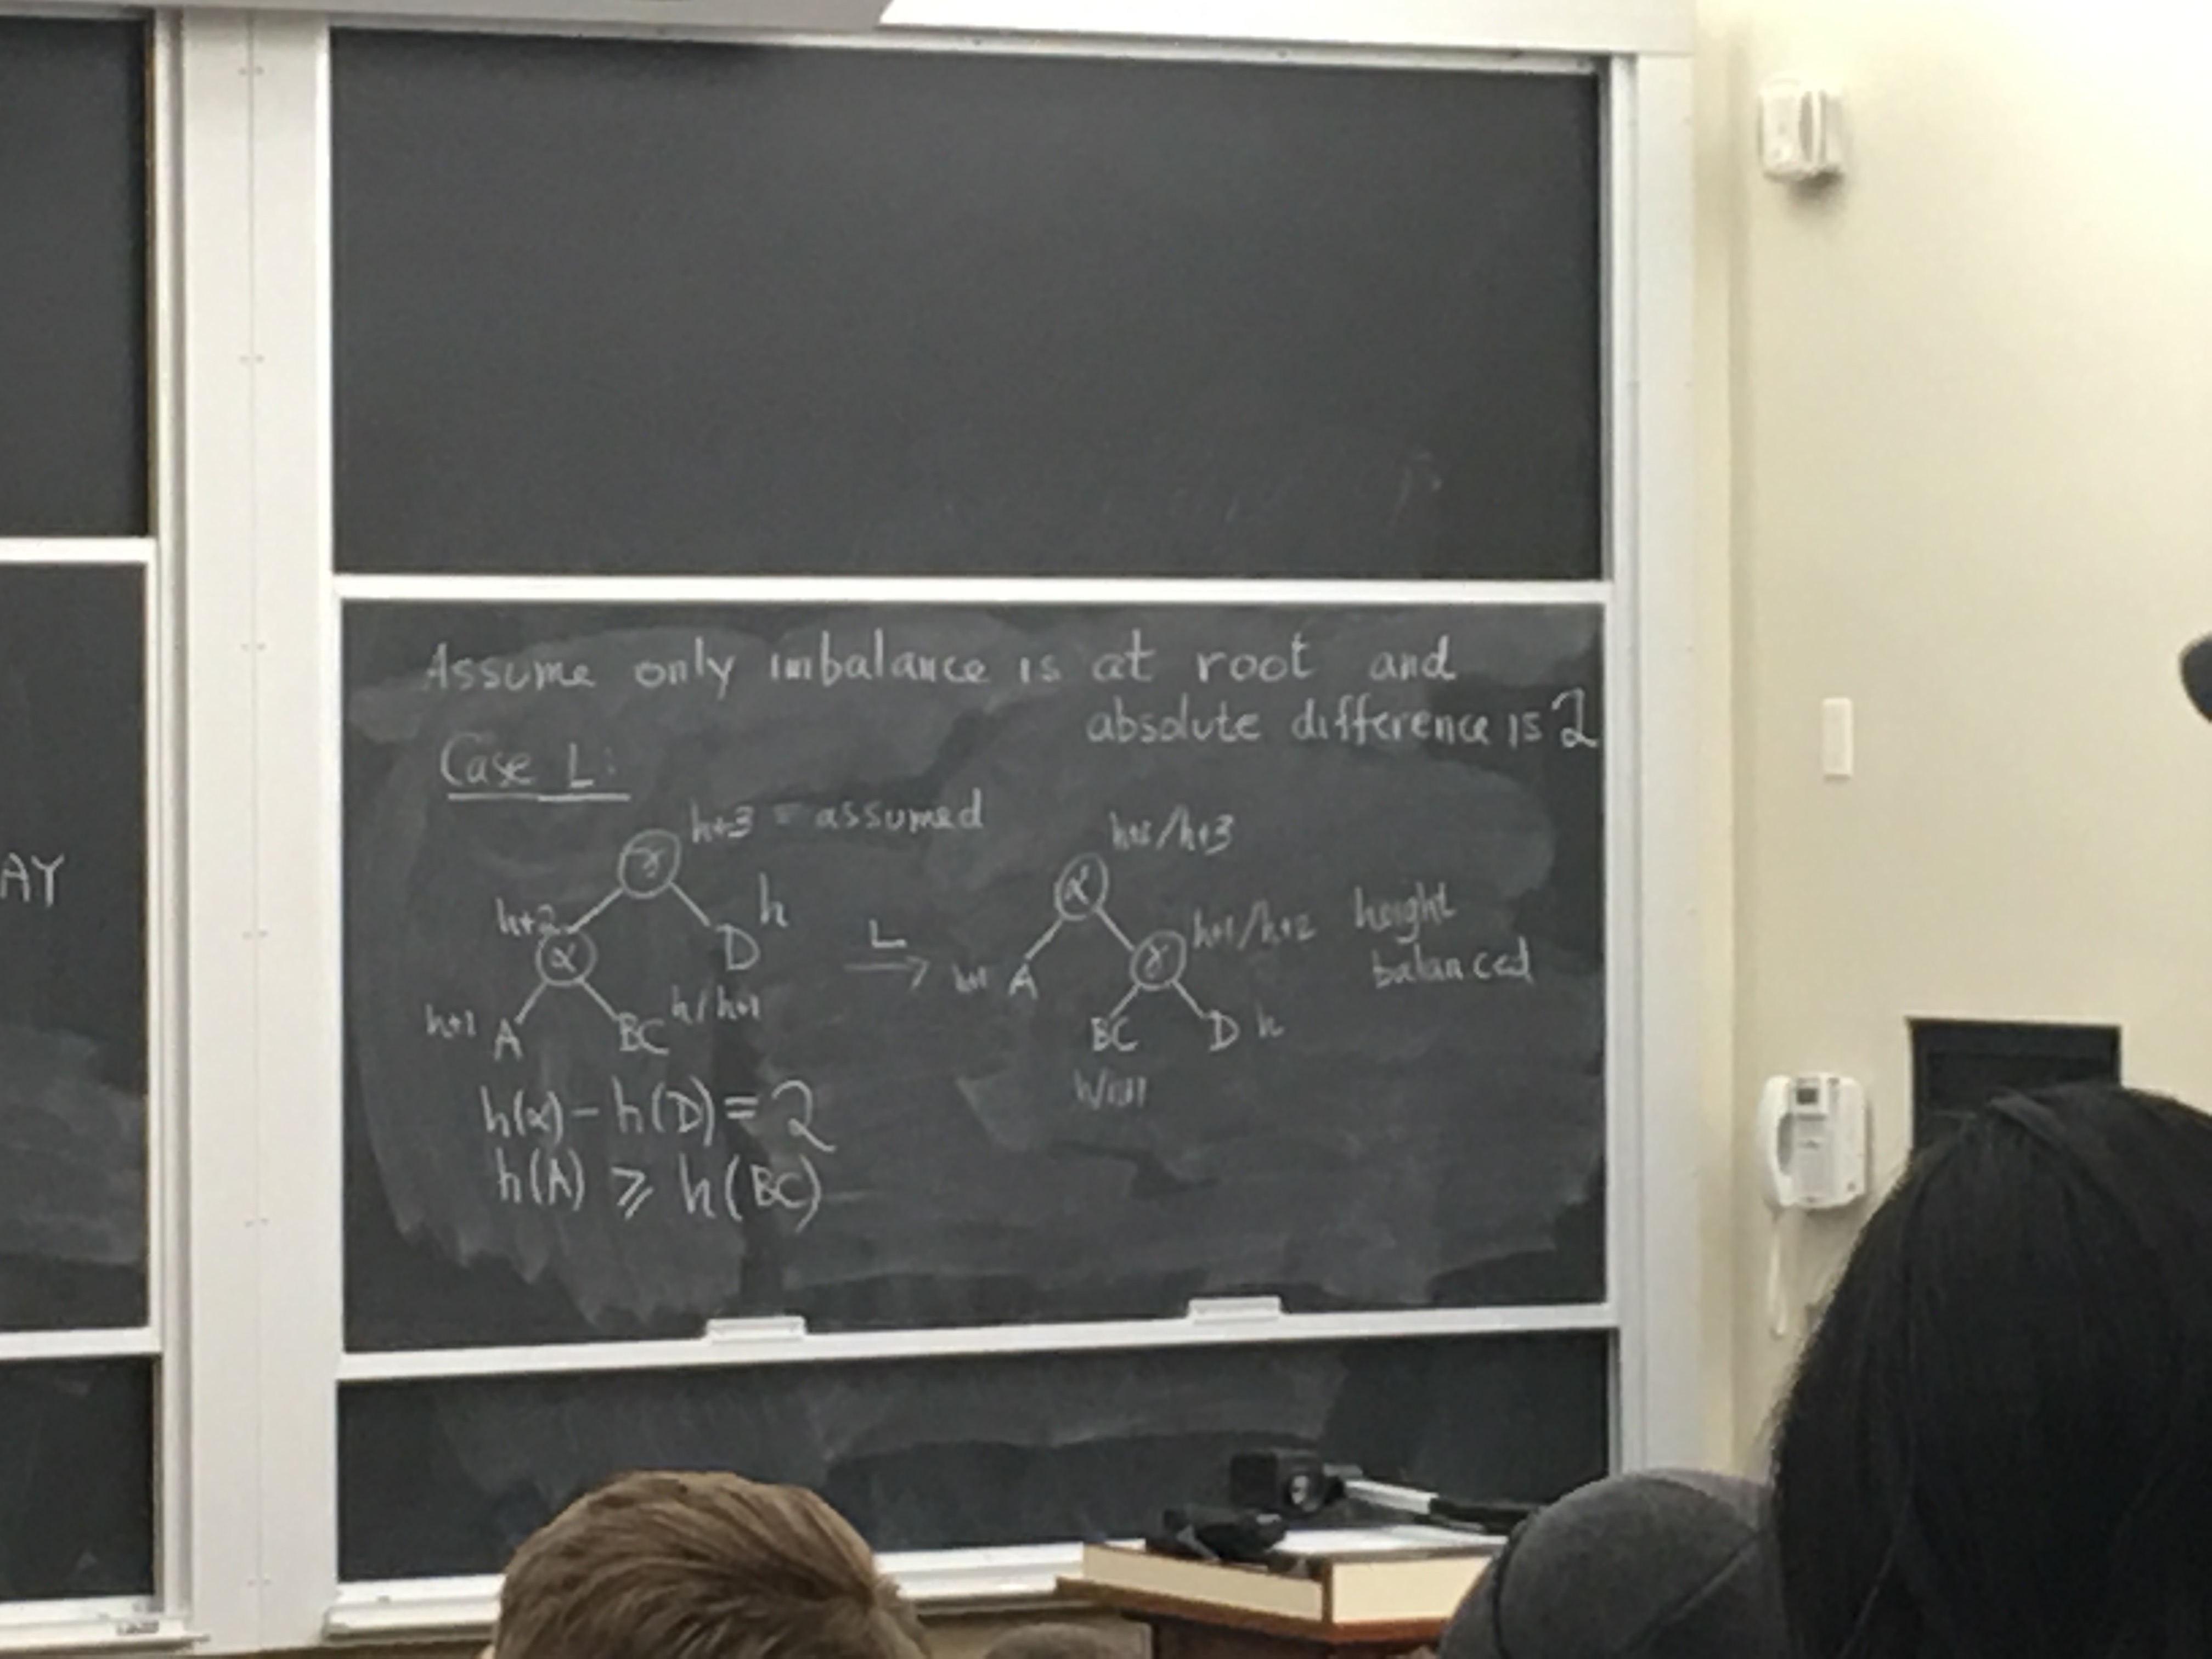 AY
Assume only imbalance is at root and
absolute difference is 2
Case L:
h+3 = assumed
γ
h+2
α
h
D
h+1 A
BC h/h+1
h(α) - h(D) = 2
h(A) ⩾ h(BC)
L
→
h+2/h+3
α
h+1 A
γ h+1/h+2
height
balanced
BC
D h
h/h+1